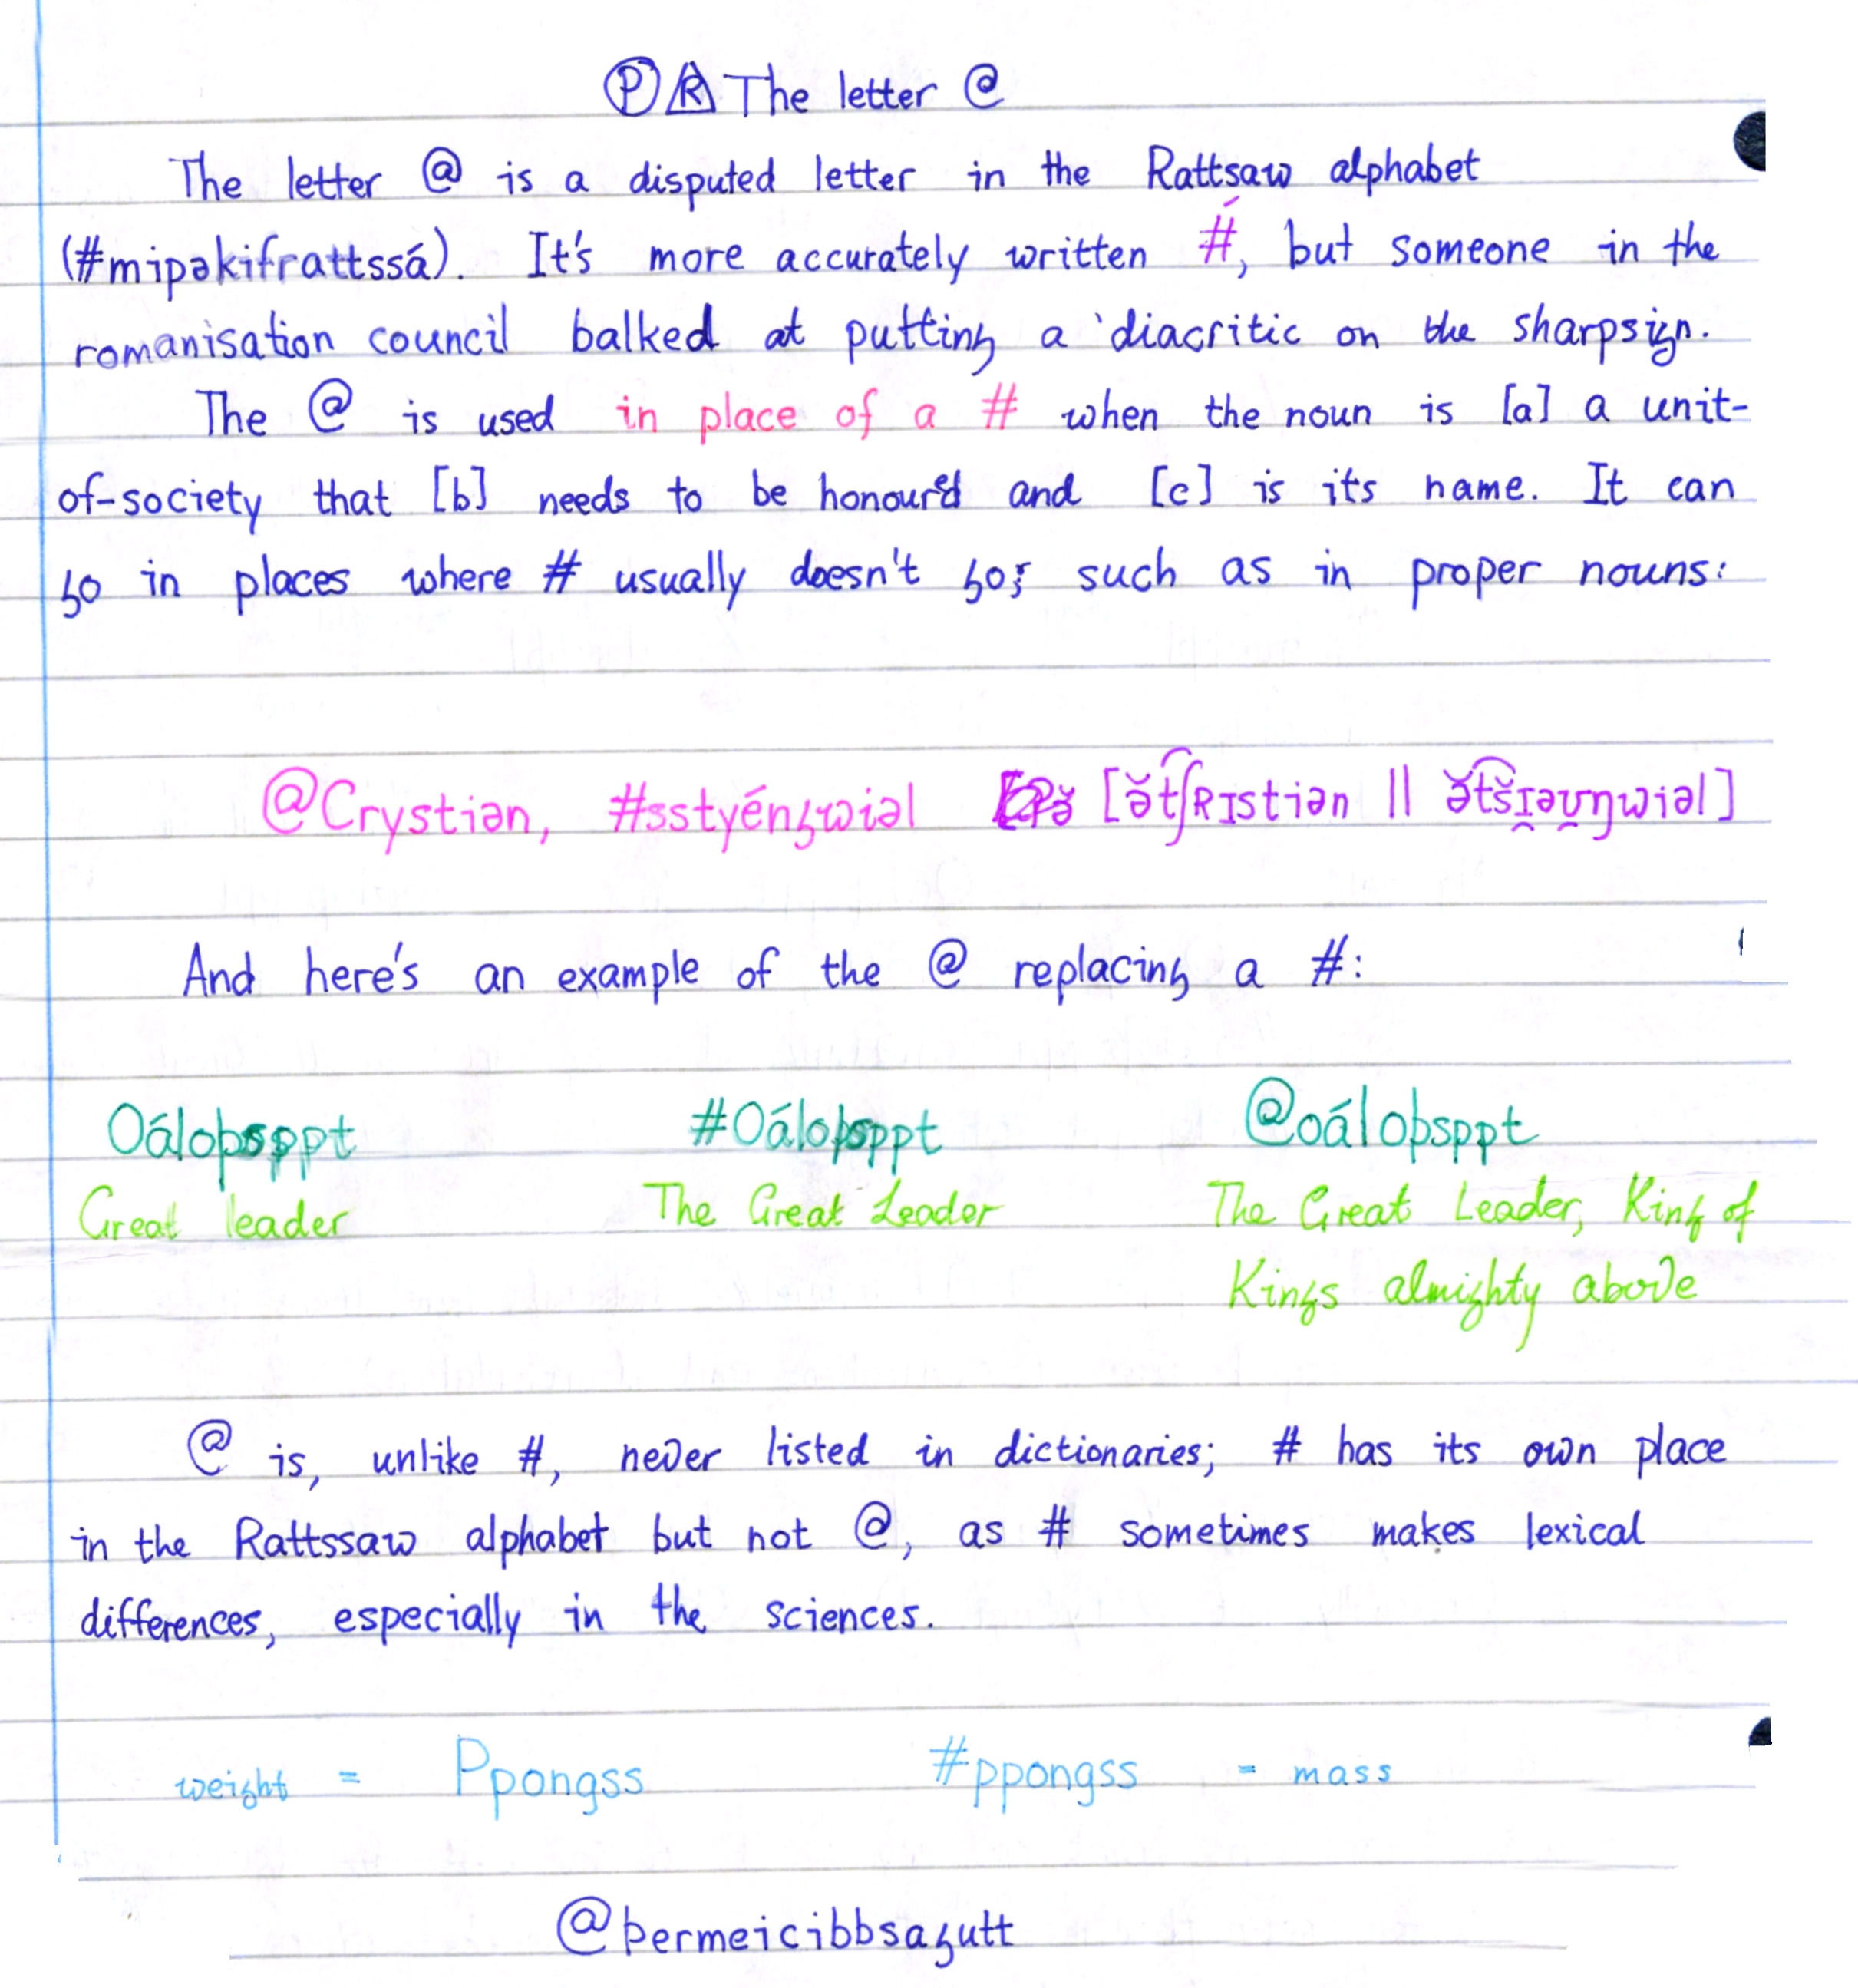 Ⓟ Ⓡ The letter @
The letter @ is a disputed letter in the Rattsaw alphabet
(#mipəkifrattssá). It's more accurately written #́, but someone in the
romanisation council balked at putting a diacritic on the sharpsign.
The @ is used in place of a # when the noun is [a] a unit-
of-society that [b] needs to be honour'd and [c] is its name. It can
go in places where # usually doesn't go; such as in proper nouns:
@Crystiən, #sstyéngwiəl [ə̆t͡ʃʀɪstiən || ə̆t͡s̆ɪ̯əʊ̯ŋwiəl]
And here's an example of the @ replacing a #:
Oáloþsppt #Oáloþsppt @oáloþsppt
Great leader The Great Leader The Great Leader, King of
Kings almighty above
@ is, unlike #, never listed in dictionaries; # has its own place
in the Rattssaw alphabet but not @, as # sometimes makes lexical
differences, especially in the sciences.
weight = Ppongss #ppongss = mass
@þermeicibbsagutt